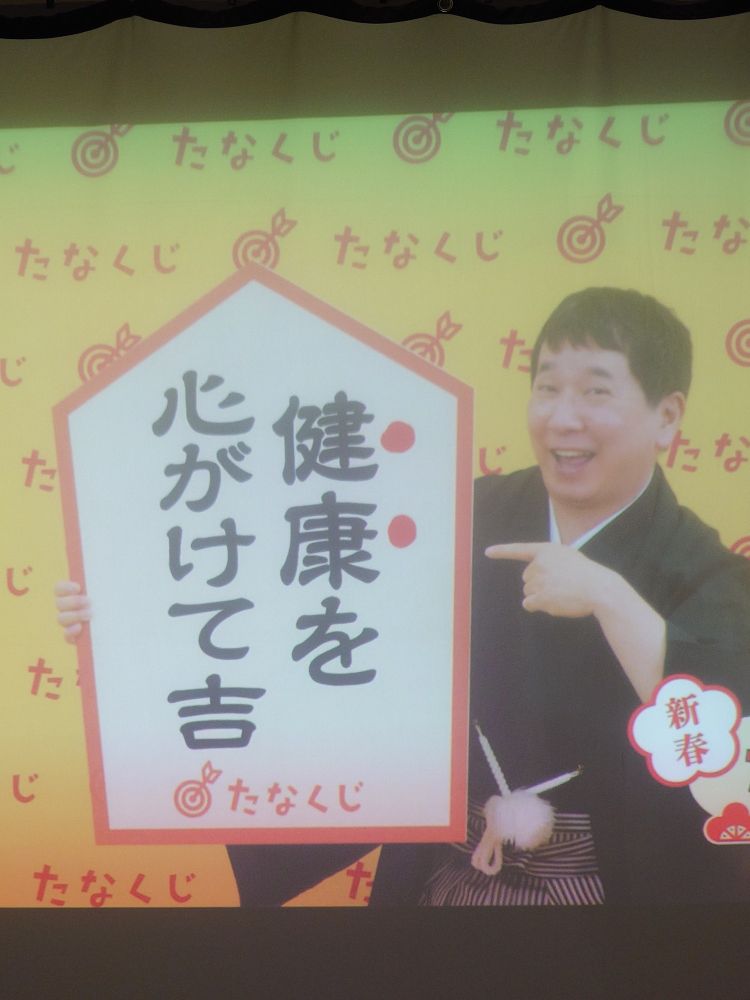 たなくじ
たなくじ
たなくじ
たなくじ
たな
健康を
心がけて吉
たなくじ
新春
たなくじ